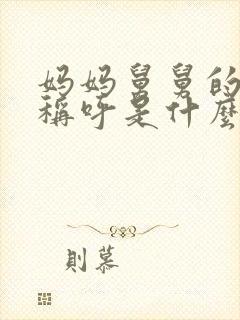 妈妈舅舅的
稱呼是什麼
則慕